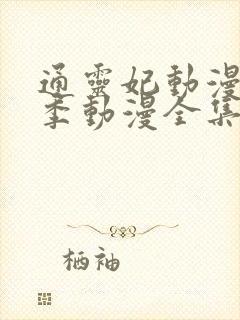 通靈妃動漫
季動漫全集
栖袖